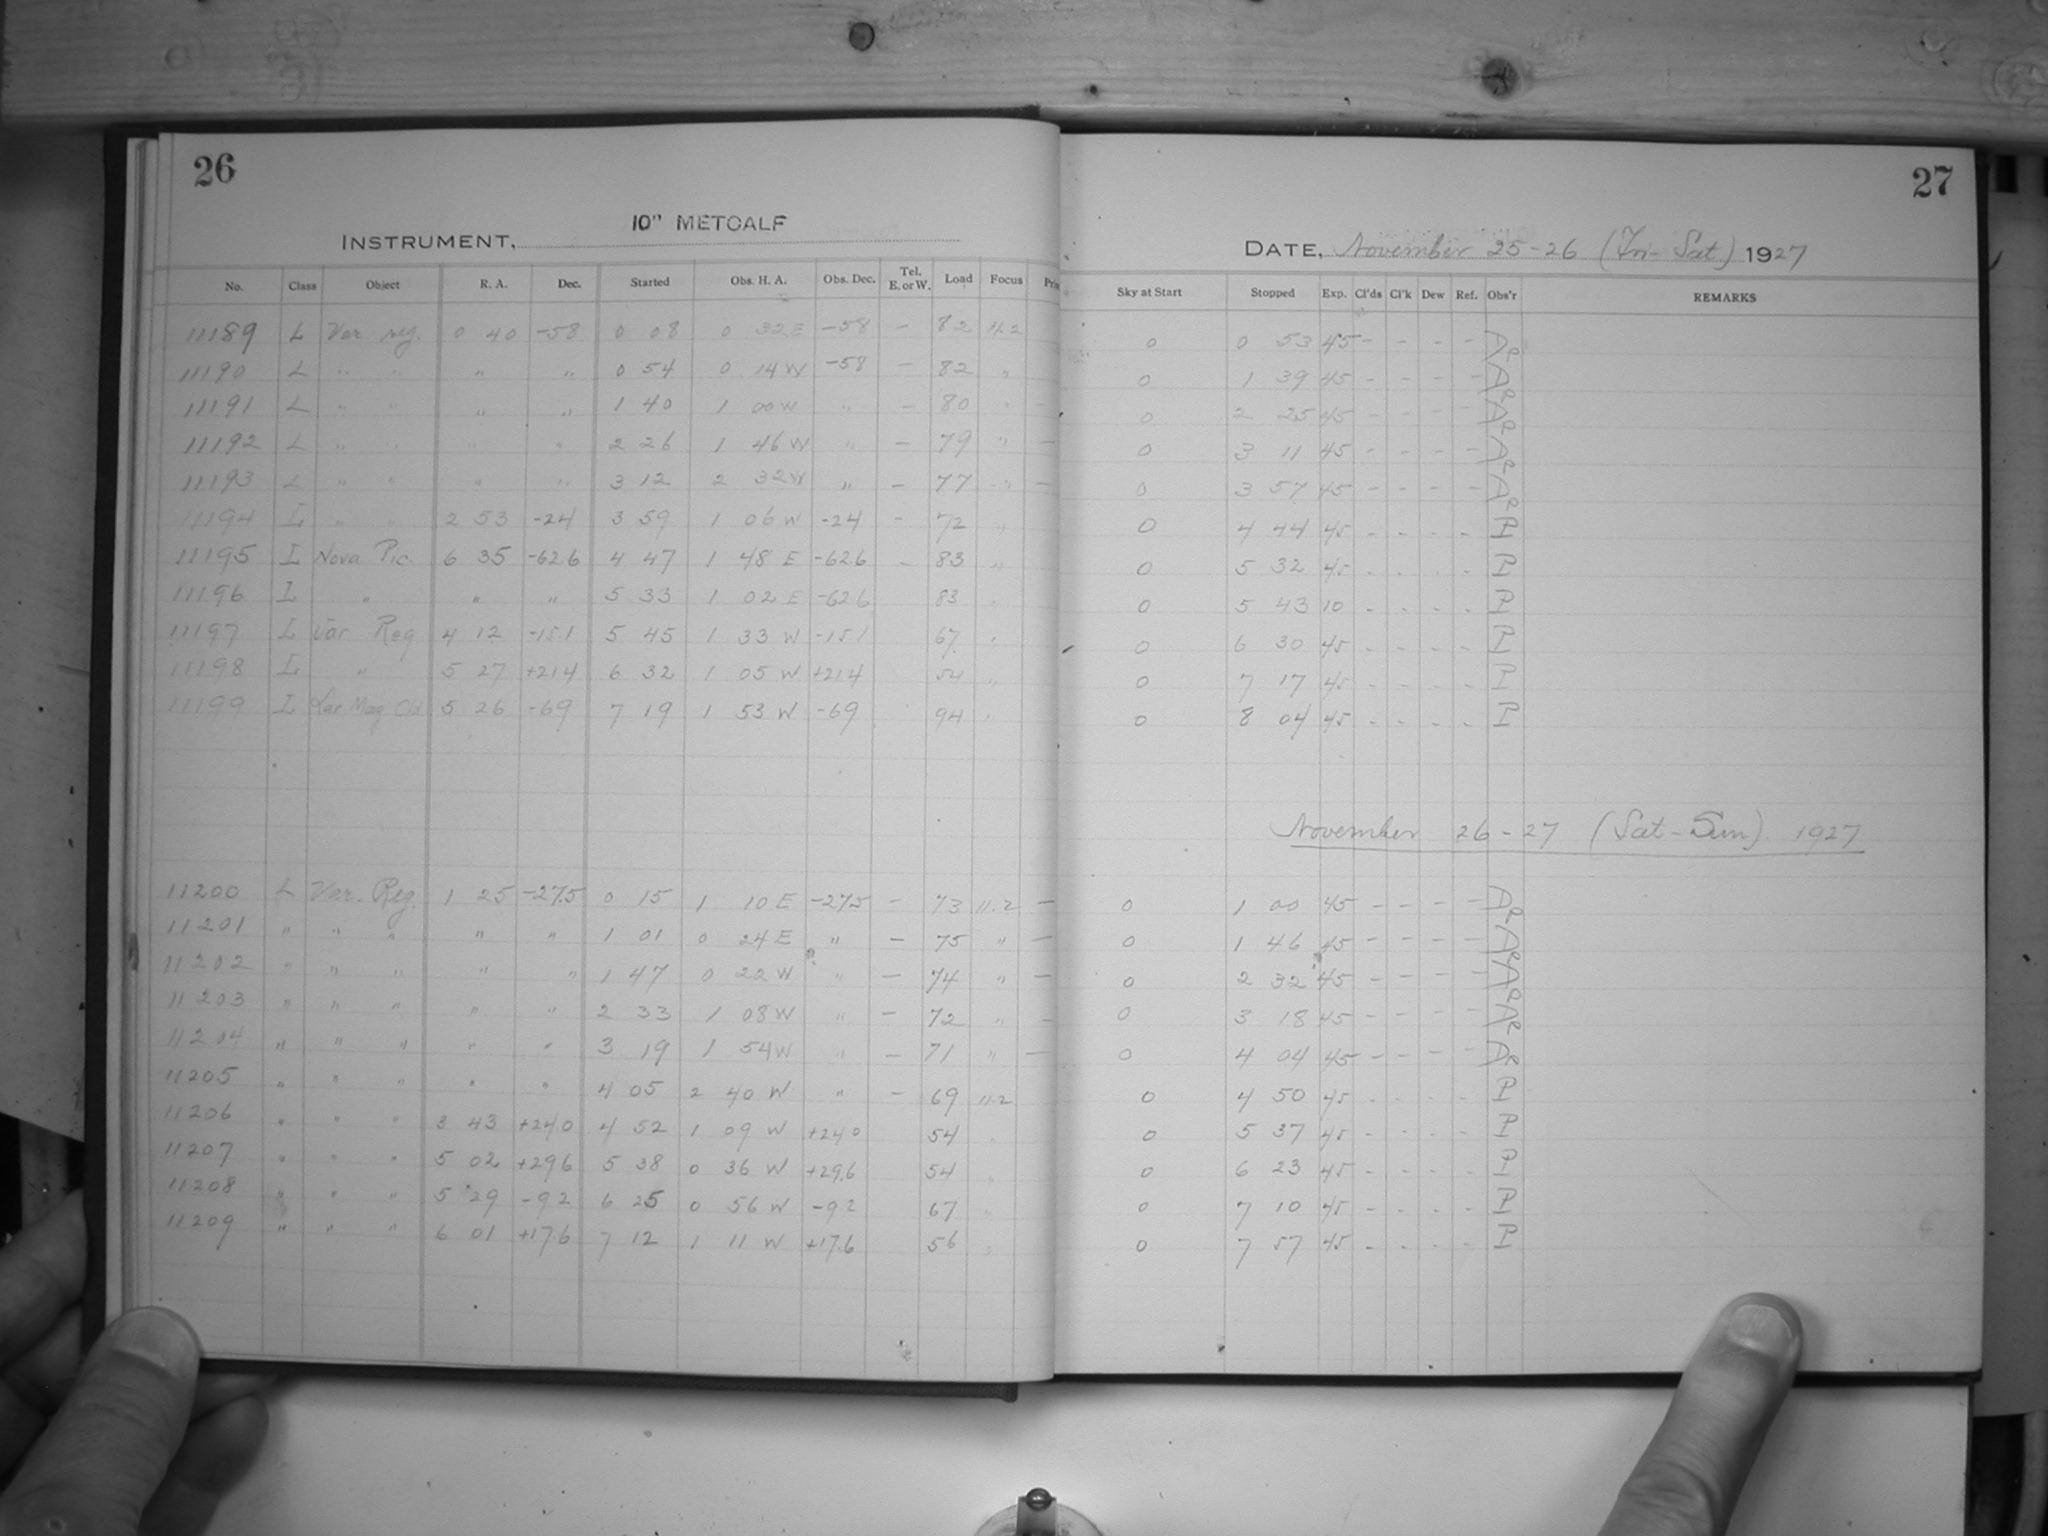 26
INSTRUMENT, 10" METCALF
No. Class Object R. A. Dec. Started Obs. H. A. Obs. Dec. Tel. E. or W. Load Focus
11189 L Var. reg. 0 40 -58 0 08 0 32 E -58 - 82 11.2
11190 L " " " " 0 54 0 14 W -58 - 82 "
11191 L " " " " 1 40 1 00 W " - 80 "
11192 L " " " " 2 26 1 46 W " - 79 " -
11193 L " " " " 3 12 2 32 W " - 77 " -
11194 L " " 2 53 -24 3 59 1 06 W -24 - 72 "
11195 L Nova Pic. 6 35 -62.6 4 47 1 48 E -62.6 - 83 "
11196 L " " " 5 33 1 02 E -62.6 83 "
11197 L Var Reg 4 12 -15.1 5 45 1 33 W -15.1 67 "
11198 L " 5 27 +21.4 6 32 1 05 W +21.4 54 "
11199 L Lar Mag Cld 5 26 -69 7 19 1 53 W -69 94 "
11200 L Var. Reg. 1 25 -27.5 0 15 1 10 E -27.5 - 73 11.2 -
11201 " " " " " 1 01 0 24 E " - 75 " -
11202 " " " " " 1 47 0 22 W " - 74 " -
11203 " " " " " 2 33 1 08 W " - 72 " -
11204 " " " " " 3 19 1 54 W " - 71 " -
11205 " " " " " 4 05 2 40 W " - 69 11.2
11206 " " " 3 43 +24.0 4 52 1 09 W +24.0 54 "
11207 " " " 5 02 +29.6 5 38 0 36 W +29.6 54 "
11208 " " " 5 29 -9.2 6 25 0 56 W -9.2 67 "
11209 " " " 6 01 +17.6 7 12 1 11 W +17.6 56 "
27
DATE, November 25-26 (Fri-Sat) 1927
Sky at Start Stopped Exp. Cl'ds Cl'k Dew Ref. Obs'r REMARKS
0 0 53 45 - - - -
0 1 39 45 - - - -
0 2 25 45 - - - -
0 3 11 45 - - - -
0 3 57 45 - - - -
0 4 44 45 - - - - P
0 5 32 45 - - - - P
0 5 43 10 - - - - P
0 6 30 45 - - - - P
0 7 17 45 - - - - P
0 8 04 45 - - - - P
November 26-27 (Sat-Sun) 1927
0 1 00 45 - - - -
0 1 46 45 - - - -
0 2 32 45 - - - -
0 3 18 45 - - - -
0 4 04 45 - - - -
0 4 50 45 - - - - P
0 5 37 45 - - - - P
0 6 23 45 - - - - P
0 7 10 45 - - - - P
0 7 57 45 - - - - P